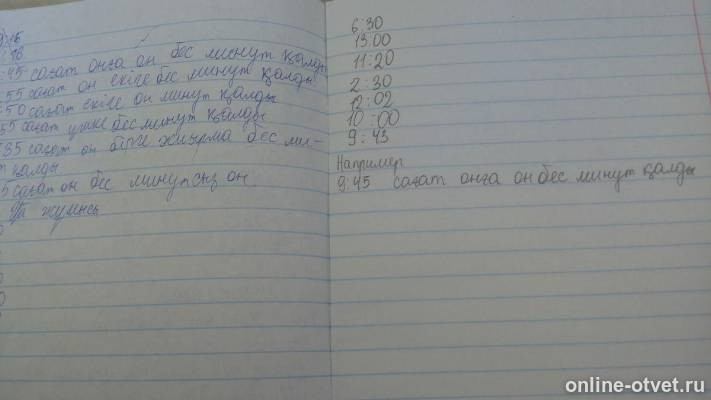 9:15
:45 сағат онға он бес минут қалды
:55 сағат он екіге бес минут қалды
:50 сағат екіге он минут қалды
55 сағат үшке бес минут қалды
:35 сағат он бірге жиырма бес ми-
қалды
5 сағат он бес минутсыз он
Үй жұмысы
6:30
13:00
11:20
2:30
12:02
10:00
9:43
Например
9:45 сағат онға он бес минут қалды
online-otvet.ru